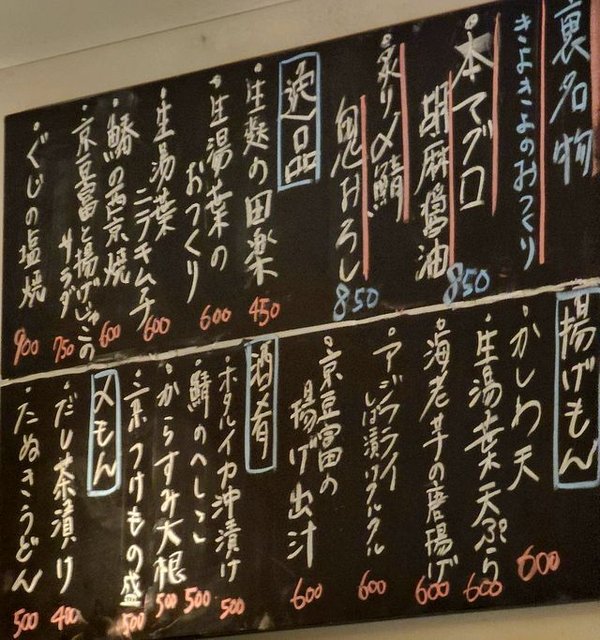 裏名物
きよきよのおつくり
・本マグロ
胡麻醤油
850
・炙り〆鯖
鬼おろし
850
逸品
・生麩の田楽
450
・生湯葉の
おつくり
600
・生湯葉
ニラキムチ
600
・鰆の西京焼
600
・京豆富と揚げじゃこの
サラダ
750
・ぐじの塩焼
900
揚げもん
・かしわ天
600
・生湯葉天ぷら
600
・海老芋の唐揚げ
600
・アジフライ
しば漬けタルタル
600
・京豆富の
揚げ出汁
600
酒肴
・ホタルイカ沖漬け
500
・鯖のへしこ
500
・からすみ大根
500
・京つけもの盛
500
〆もん
・だし茶漬け
400
・たぬきうどん
500